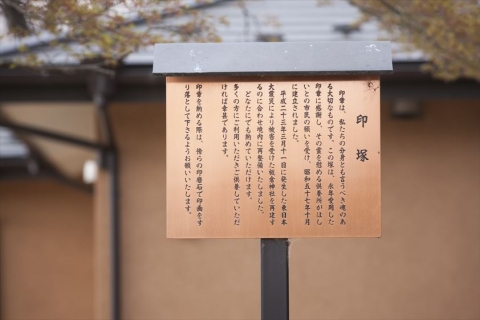 印塚
印章は、私たちの分身とも言うべき魂のあ
る大切なものです。この塚は、永年愛用した
印章に感謝し、その霊を慰める供養所がほし
いとの市民の願いを受け、昭和五十七年十月
に建立されました。
平成二十三年三月十一日に発生した東日本
大震災により被害を受けた板倉神社を再建す
るのに合わせ境内に再整備いたしました。
どなたにでも納めていただけます。
多くの方にご利用いただきご供養していただ
ければ幸甚であります。
印章を納める際は、傍らの印磨石で印面をす
り落として下さるようお願いいたします。